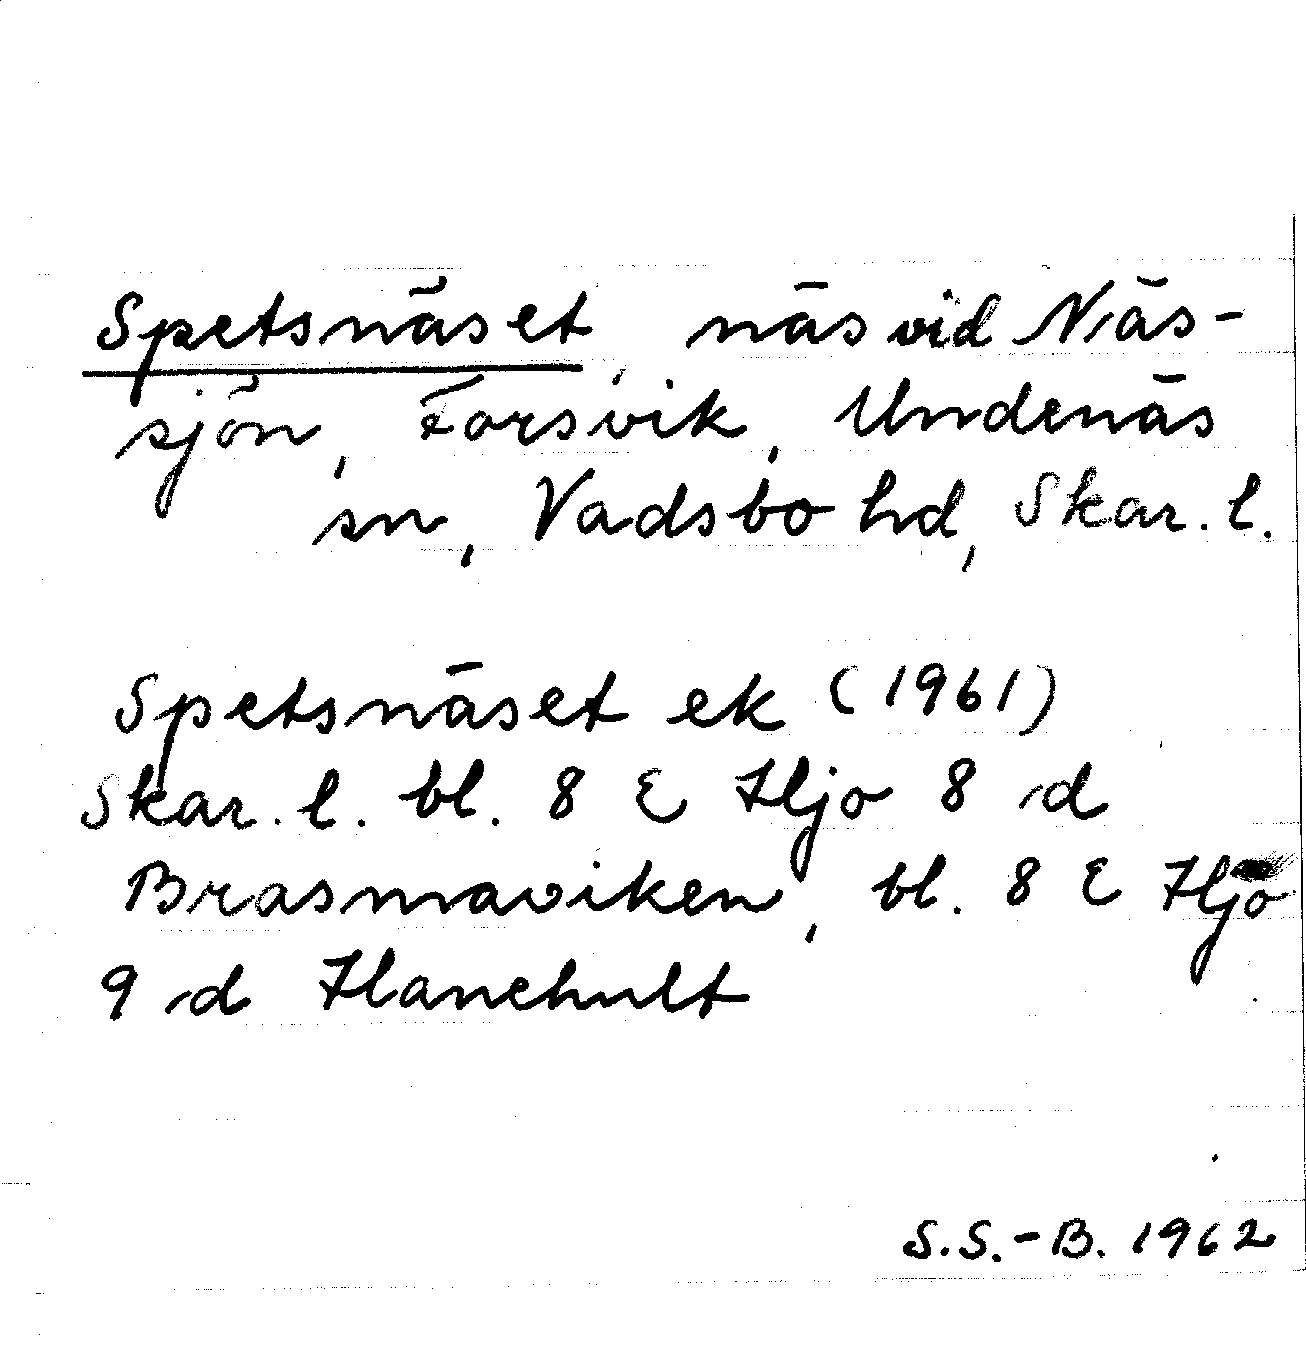 Spetsnäset, näs vid Näs-
sjön, Forsvik, Undenäs
sn, Vadsbo hd, Skar. l.
Spetsnäset ek (1961)
Skar. l. bl. 8 E Hjo 8 d
Brasmaviken, bl. 8 E Hjo
9 d Hanehult
S.S.-B. 1962